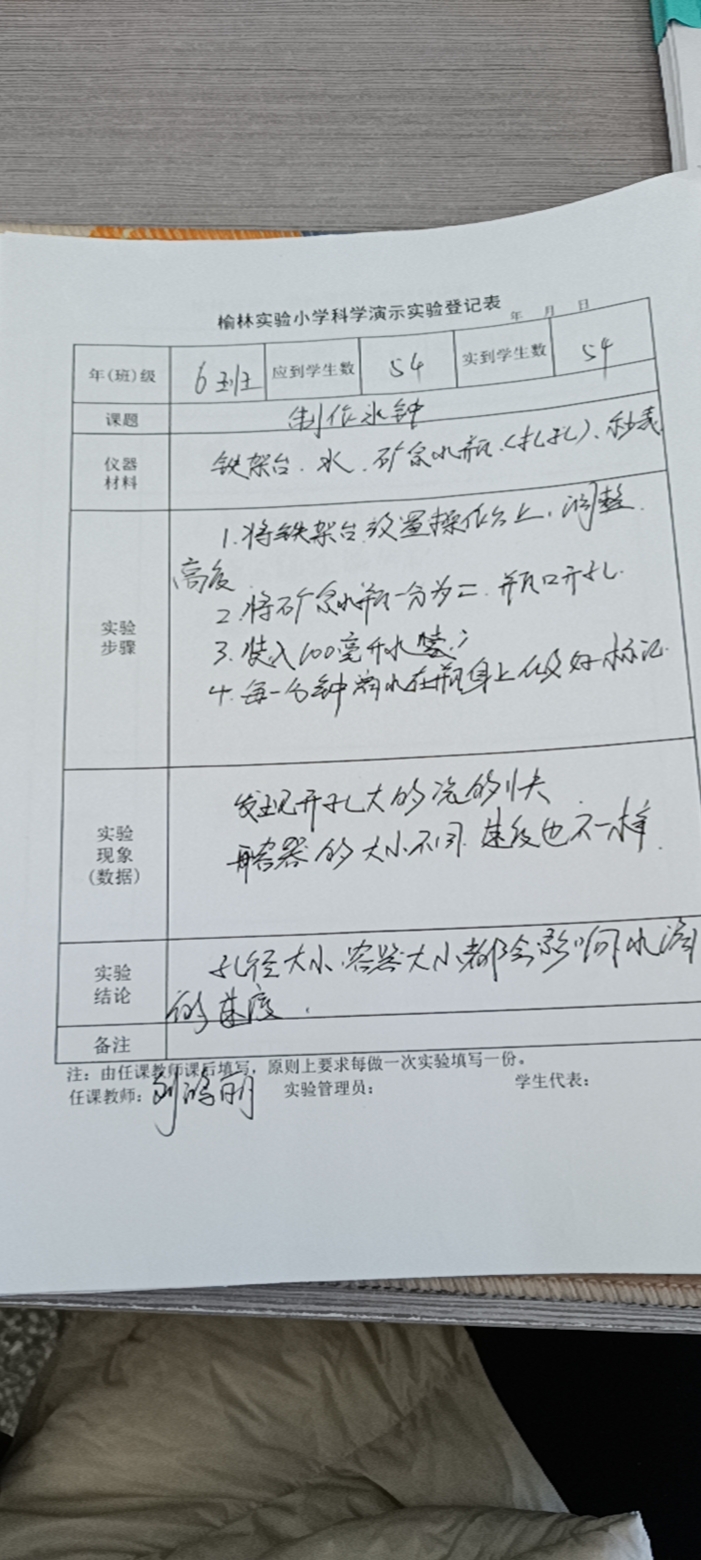 榆林实验小学科学演示实验登记表
年 月 日
年(班)级 6班 应到学生数 54 实到学生数 54
课题 制作水钟
仪器材料 铁架台、水、矿泉水瓶(扎孔)、秒表
实验步骤 1.将铁架台设置操作台上,调整
高度
2.将矿泉水瓶一分为二.瓶口开孔.
3.装入100毫升水
4.每一分钟 水在瓶身上做好标记.
实验现象(数据) 发现开孔大的流的快
容器的大小不同.速度也不一样.
实验结论 孔径大小.容器大小都会影响水滴
的速度.
备注
注:由任课教师课后填写,原则上要求每做一次实验填写一份。
任课教师: 实验管理员: 学生代表: